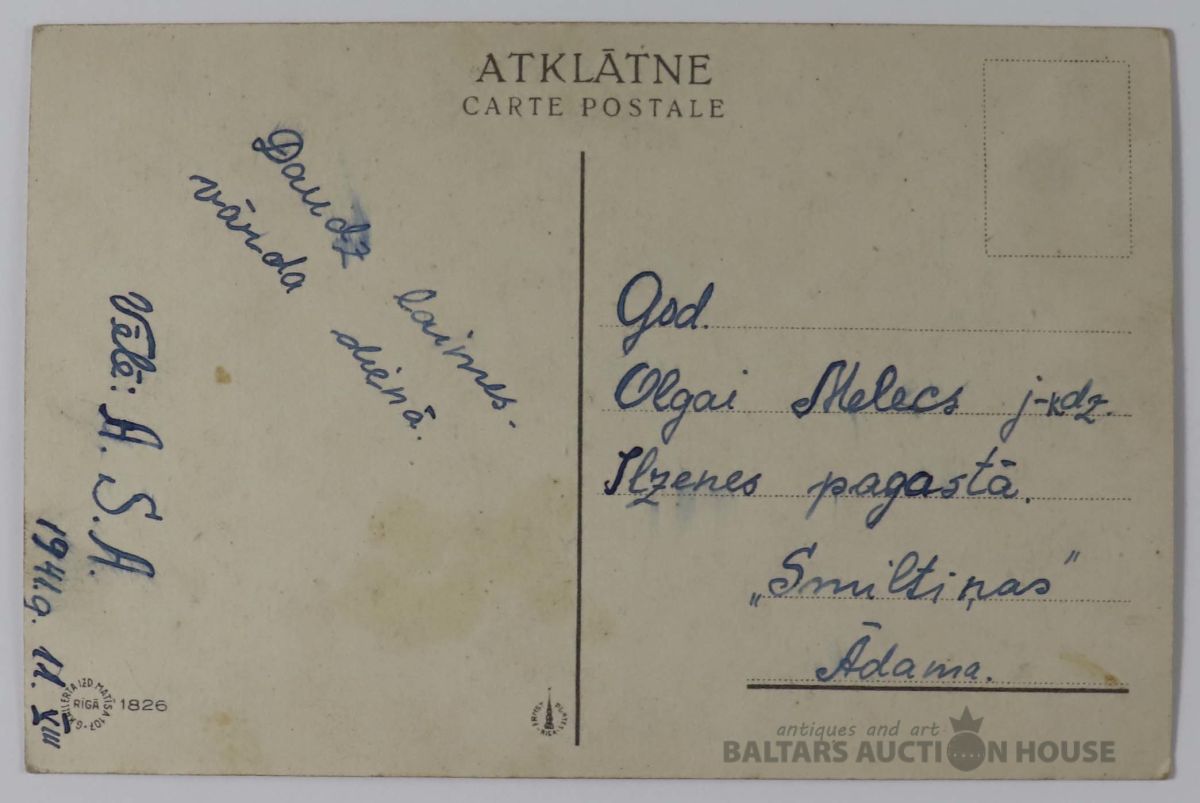 ATKLĀTNE
CARTE POSTALE
Daudz laimes
vārda dienā.
Vēlē: A. S. A.
1941.g. 11. VII
God.
Olgai Melecs j-kdz.
Ilzenes pagastā.
„Smiltiņas"
Ādama.
RĪGĀ
1826
antiques and art
BALTARS AUCTION HOUSE